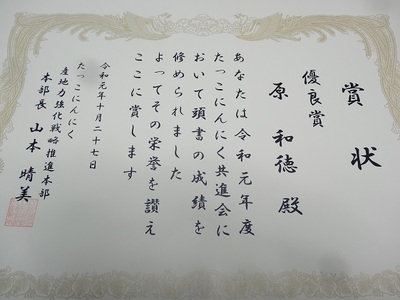 賞状
優良賞
原和徳殿
あなたは令和元年度
たっこにんにく共進会に
おいて頭書の成績を
修められました
よってその栄誉を讃え
ここに賞します
令和元年十月二十七日
たっこにんにく
産地力強化戦略推進本部
本部長山本晴美